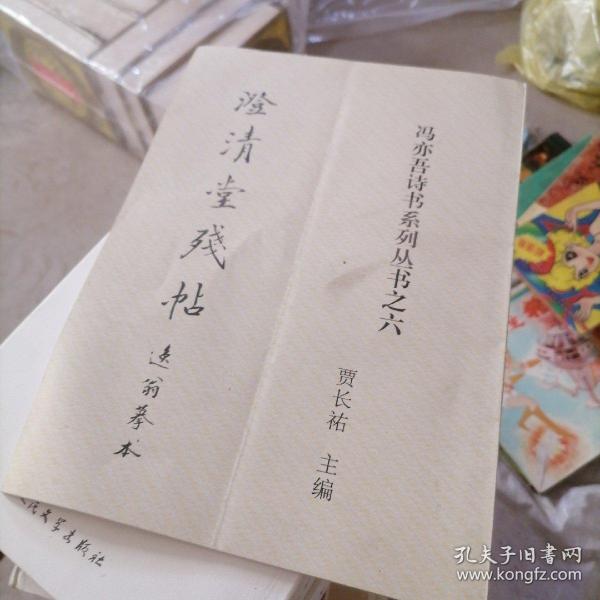 冯亦吾诗书系列丛书之六
贾长祐 主编
澄清堂残帖
逸翁摹本
民文学出版社
孔夫子旧书网
www.kongfz.com